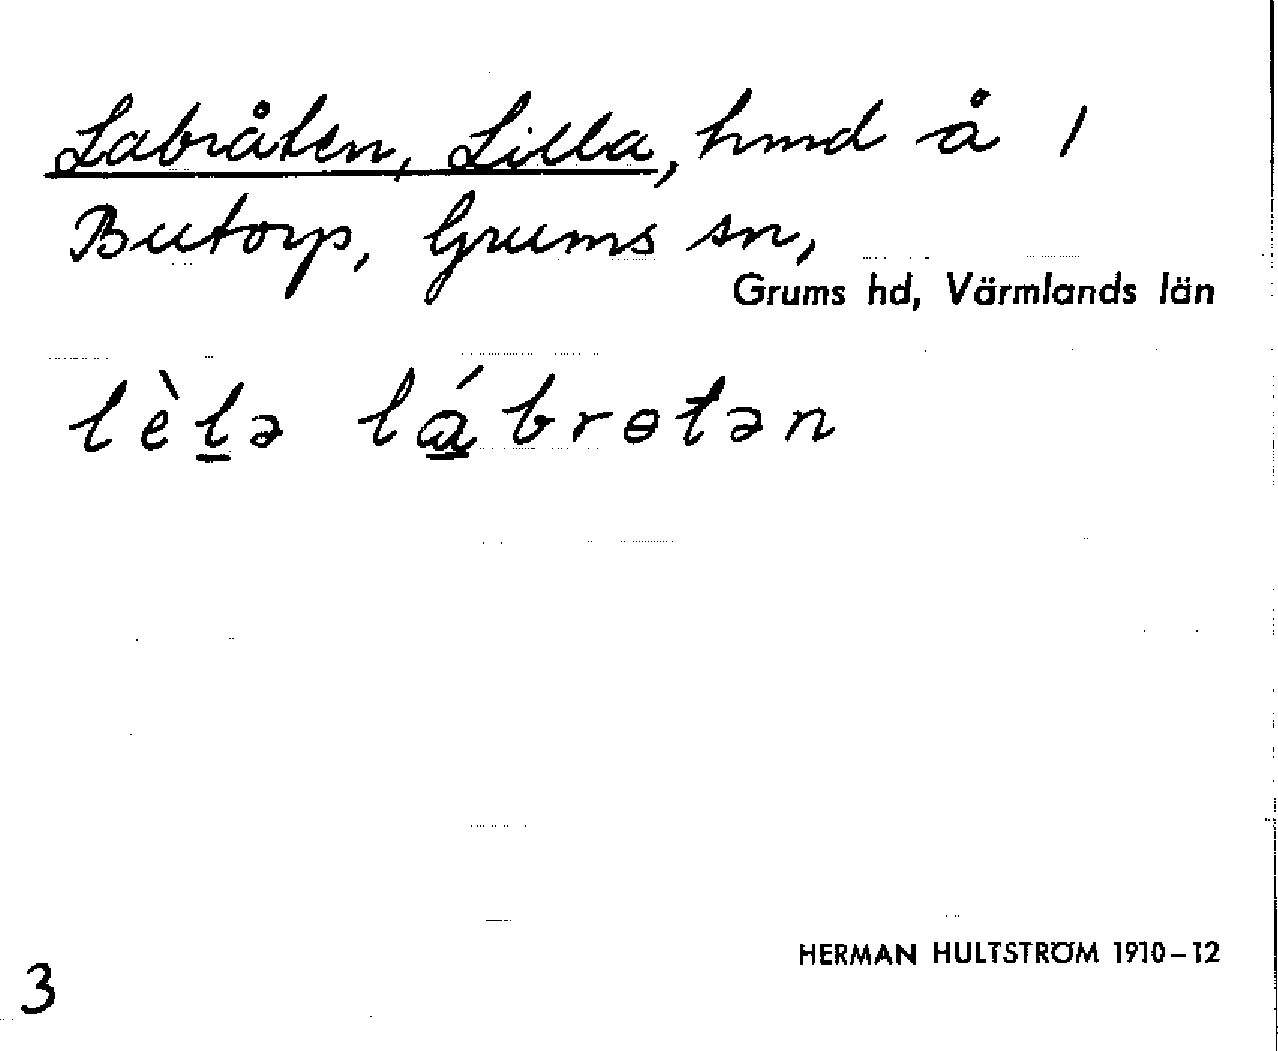 Labråten, Lilla, hmd å 1
Butorp, Grums sn,
Grums hd, Värmlands län
lèl̲ə lá̲brɵtən
HERMAN HULTSTRÖM 1910–12
3